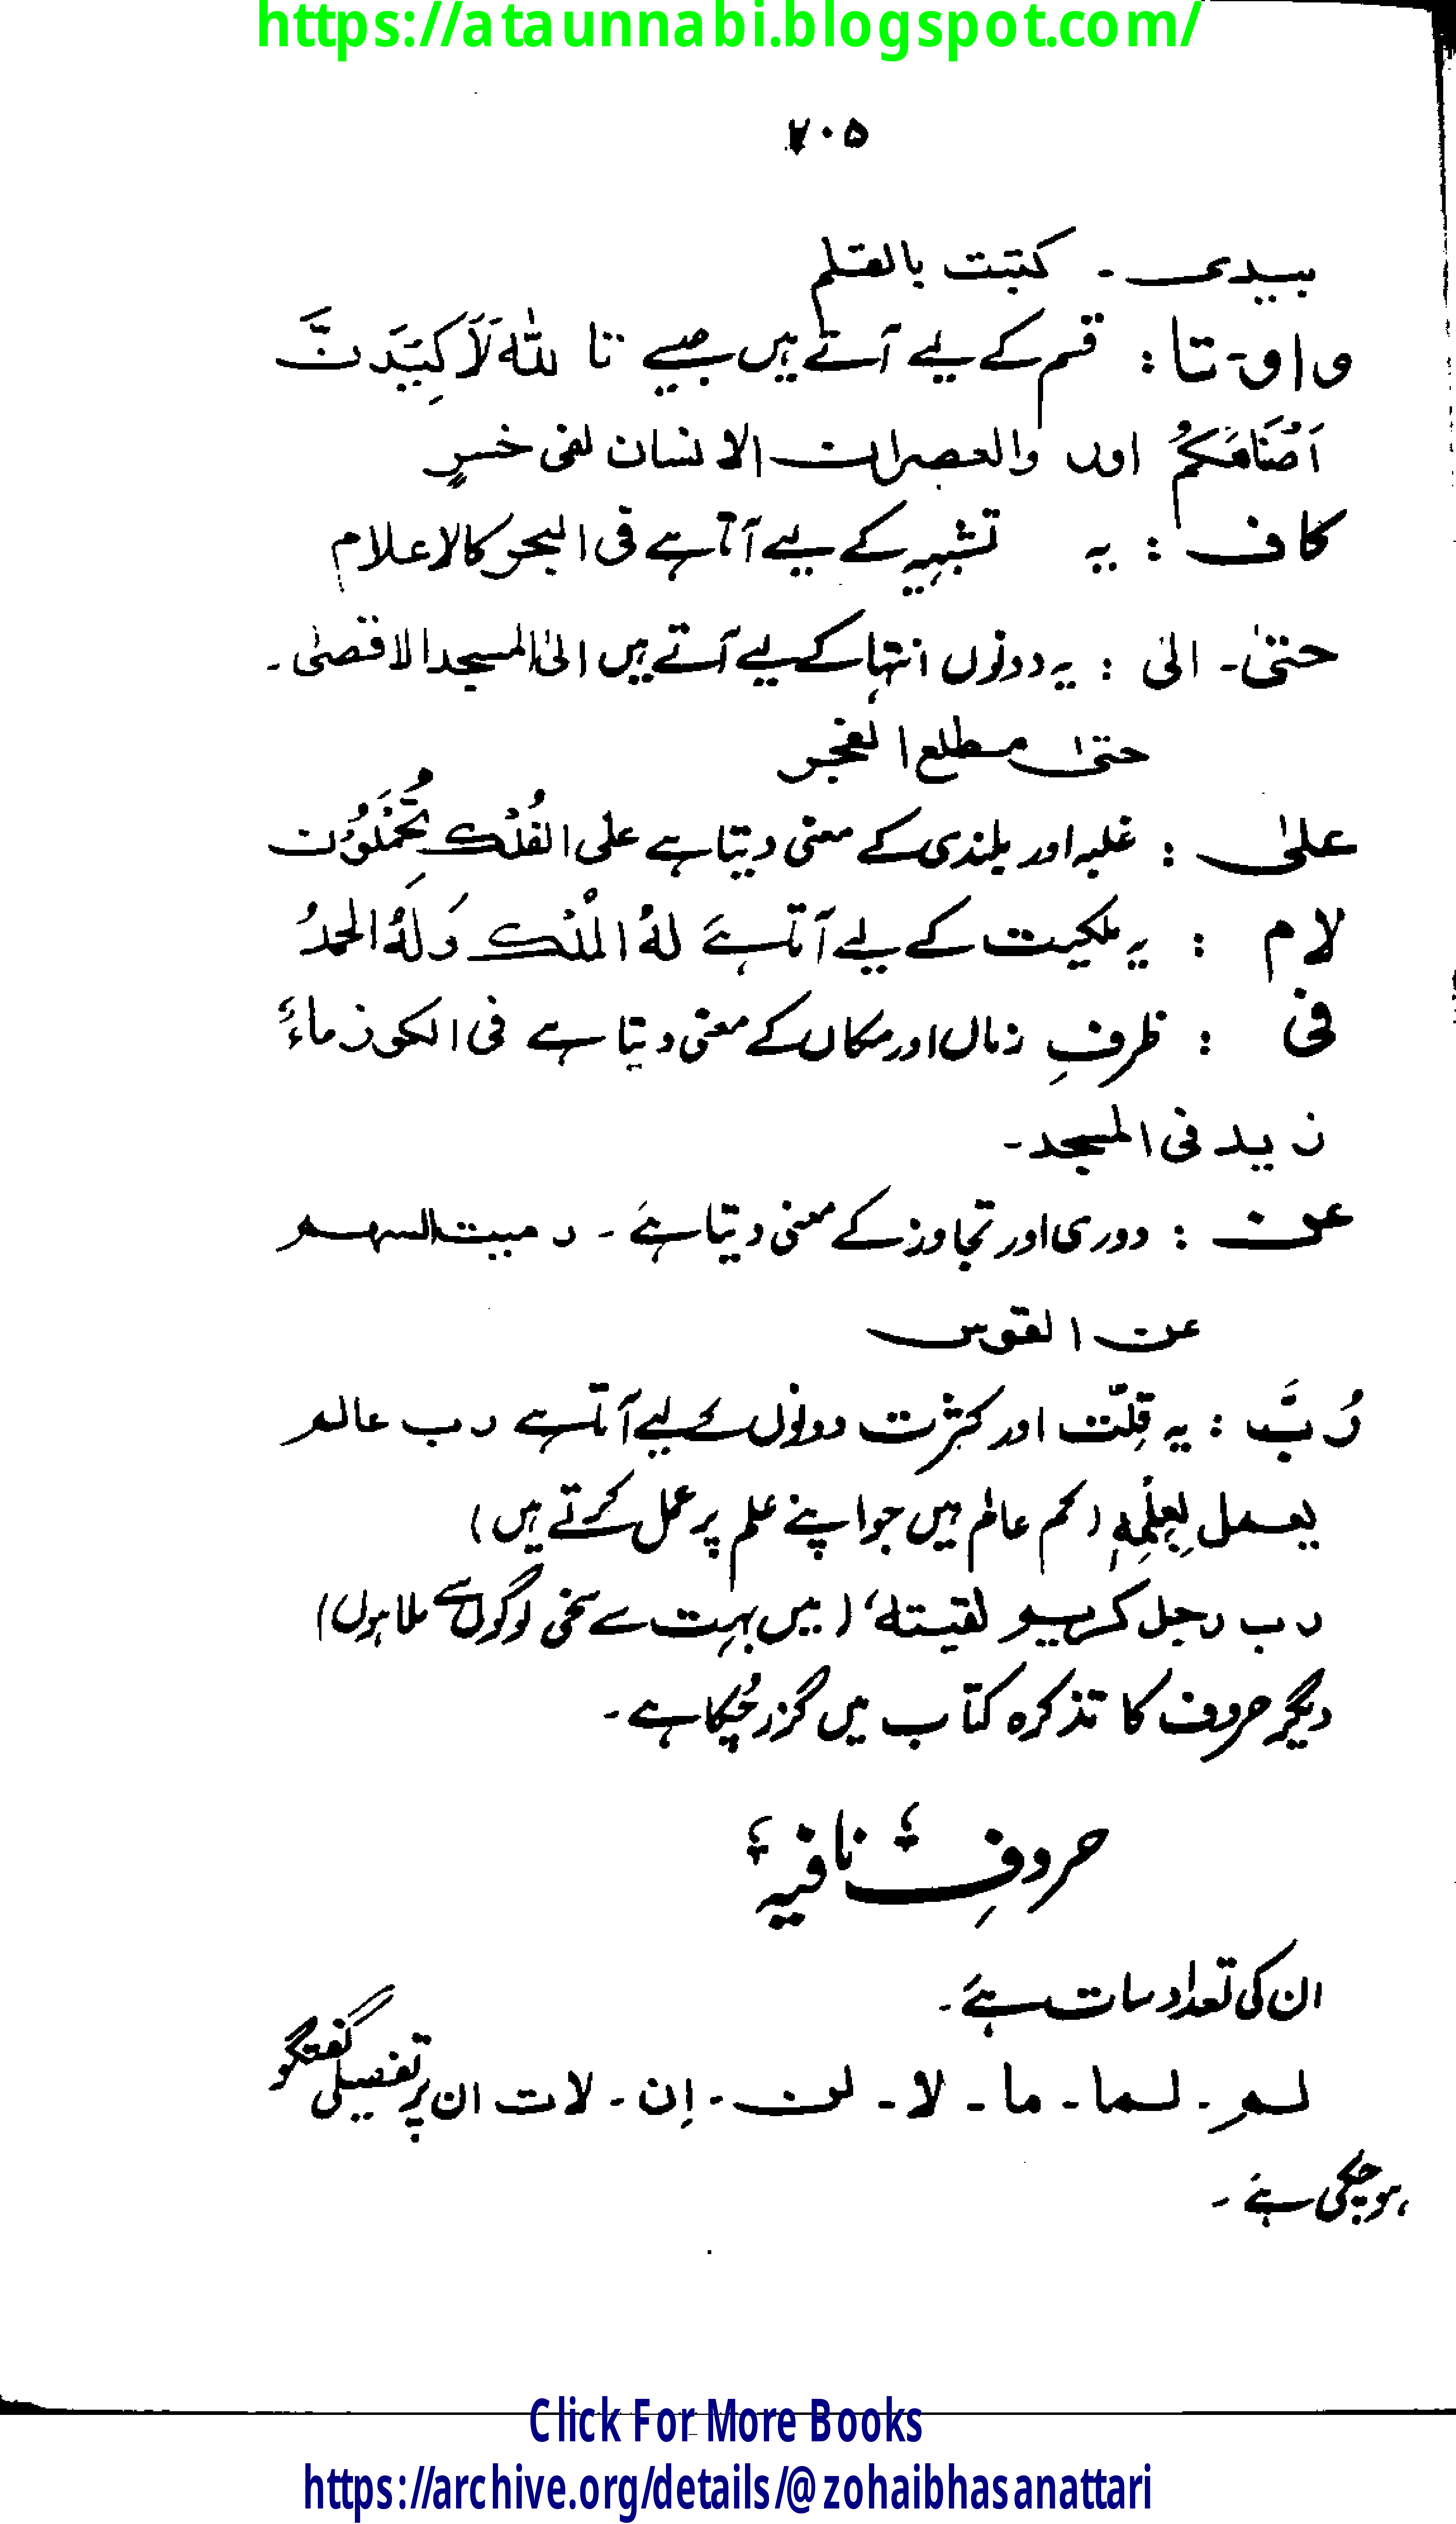 https://ataunnabi.blogspot.com/
۷۰۵
بیدی ـ کتبت بالقلم
واو ـ تا : قسم کے لیے آتے ہیں جیسے تا للہ لَاَکِیْدَنَّ
اَصْنَامَکُمْ اور والعصر ان الانسان لفی خسرٍ
کاف : یہ تشبیہ کے لیے آتا ہے فی البحر کالاعلام
حتیٰ ۔ الیٰ : یہ دونوں انتہا کے لیے آتے ہیں الیٰ المسجد الاقصیٰ ۔
حتیٰ مطلع الفجر
علیٰ : غلبہ اور بلندی کے معنی دیتا ہے علی الفُلْک تُحْمَلُوْن
لام : یہ ملکیت کے لیے آتا ہے لہُ الْمُلْک وَلَہُ الحمدُ
فی : ظرفِ زماں اور مکاں کے معنی دیتا ہے فی الکوز ماءٌ
زید فی المسجد ۔
عن : دوری اور تجاوز کے معنی دیتا ہے ۔ رمیت السہم
عن القوس
رُبَّ : یہ قِلّت اور کثرت دونوں کے لیے آتا ہے رب عالم
یعمل بِعِلْمِہٖ (کم عالم ہیں جو اپنے علم پر عمل کرتے ہیں)
رب رجل کریم لقیتہ‘ (میں بہت سے سخی لوگوں سے ملا ہوں)
دیگر حروف کا تذکرہ کتاب میں گزر چُکا ہے ۔
حروفِ نافیہ
ان کی تعداد سات ہے ۔
لم ۔ لما ۔ ما ۔ لا ۔ لن ۔ اِن ۔ لات ان پر تفصیلی گفتگو
ہو چکی ہے ۔
Click For More Books
https://archive.org/details/@zohaibhasanattari